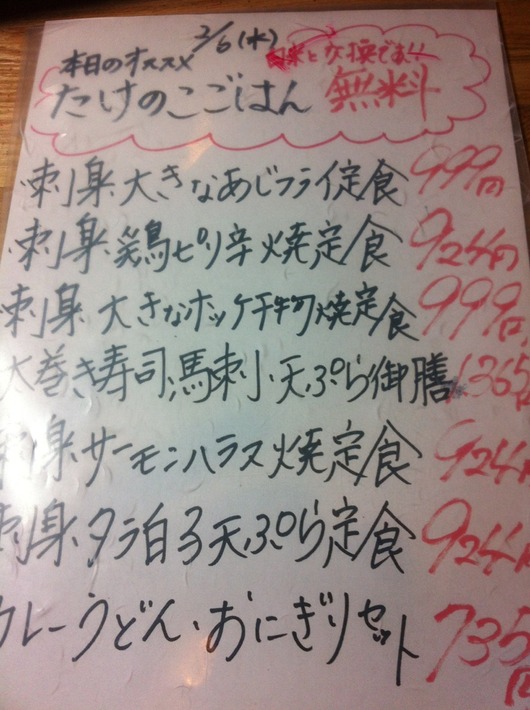 2/6(水)
本日のオススメ 白米と交換であり
たけのこごはん 無料
刺身 大きなあじフライ定食 999円
刺身 鶏ピリ辛焼定食 924円
刺身 大きなホッケ干物焼定食 999円
太巻き寿司、馬刺し、天ぷら御膳 1365円
刺身 サーモンハラス焼定食 924円
刺身 タラ白子天ぷら定食 924円
カレーうどん・おにぎりセット 735円